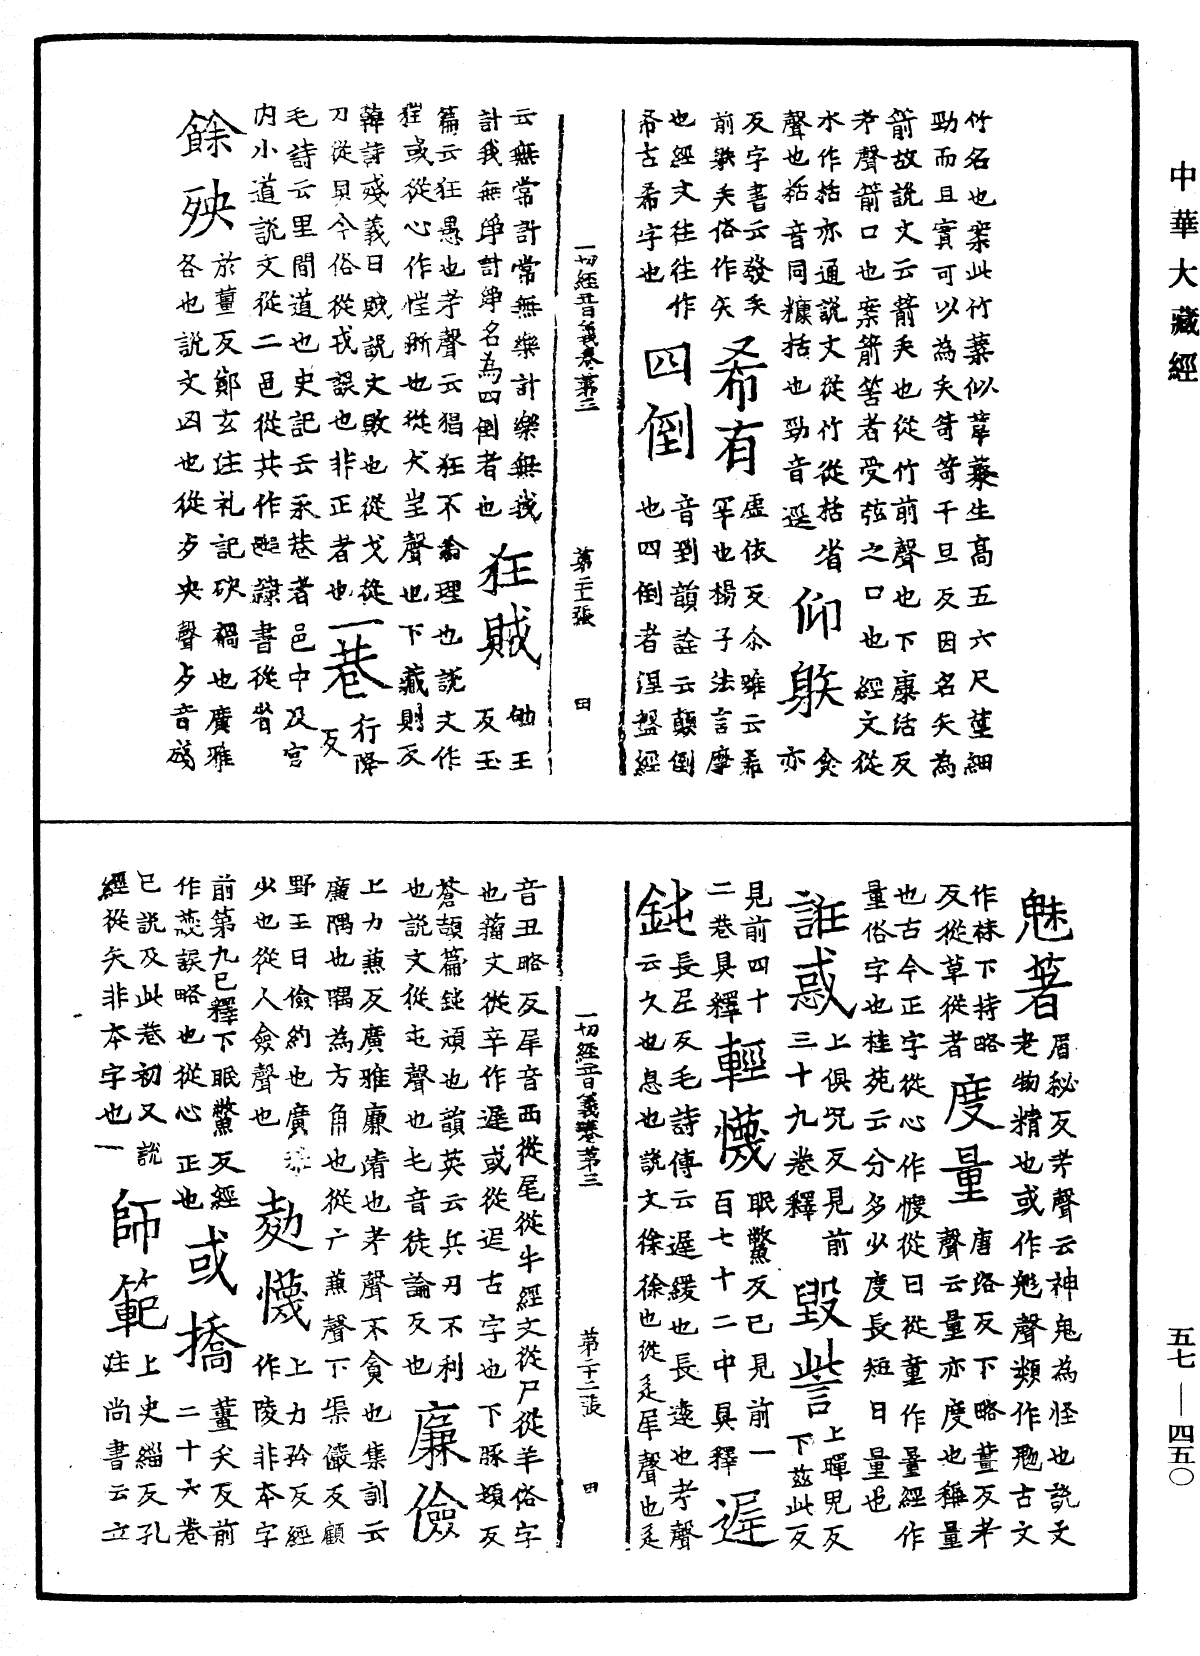 中華大藏經
竹名也案此竹葉似葦蘂生高五六尺莖細
勁而且實可以為矢笴笴干旦反因名矢為
箭故說文云箭矢也從竹前聲也下康活反
考聲箭口也案箭筈者受弦之口也經文從
水作括亦通說文從竹從括省
聲也括音同糠括也勁音逕
仰躲
食亦
反字書云發矢
前躲矢俗作矢
也經文往往作
希古希字也
希有
虛依反尒雅云希
罕也楊子法言摩
四倒
音到韻詮云顛倒
也四倒者涅盤經
一切經音義卷第三
第二十一張
田
云無常計常無樂計樂無我
計我無淨計淨名為四倒者也
狂賊
劬王反玉
篇云狂愚也考聲云猖狂不肴理也說文作
狌或從心作恇斯也從犬㞷聲也下藏則反
韓詩殘義曰賊說文敗也從戈從
刀從貝今俗從戎誤也非正者也
一巷
行降反
毛詩云里閒道也史記云永巷者邑中及宮
内小道說文從二邑從共作䢽隸書從省
餘殃
於薑反鄭玄注礼記砍禍也廣雅
各也說文凶也從歹央聲歹音殘
魅著
眉秘反考聲云神鬼為怪也說文
老物精也或作鬽聲類作勉古文
作袜下持略
反從草從者
度量
唐洛反下略薑反考
聲云量亦度也稱量
也古今正字從心作㥄從曰從童作量經作
量俗字也桂苑云分多少度長短曰量也
誑惑
上俱况反見前
三十九卷釋
毀訾
上暉鬼反
下茲此反
見前四十
二巷具釋
輕懱
眠鱉反已見前一
百七十二中具釋
遲鈍
長尼反毛詩傳云遲緩也長遠也考聲
云久也息也說文徐徐也從辵犀聲也辵
一切經音義卷第三
第二十二張
田
音丑略反犀音西從尾從牛經文從尸從羊俗字
也籀文從辛作遲或從迟古字也下豚頓反
蒼頡篇鈍頑也韻英云兵刃不利
也說文從屯聲也屯音徒論反也
廉儉
上力兼反廣雅廉清也考聲不貪也集訓云
廉隅也隅為方角也從广兼聲下渠儼反顧
野王曰儉約也廣雅
少也從人僉聲也
勑懱
上力矜反經
作陵非本字
前第九已釋下眠鱉反經
作蔑誤略也從心正也
或撟
薑夭反前
二十六卷
已說及此卷初又說
經從矢非本字也一
師範
上史緇反孔
注尚書云立
五七—四五〇